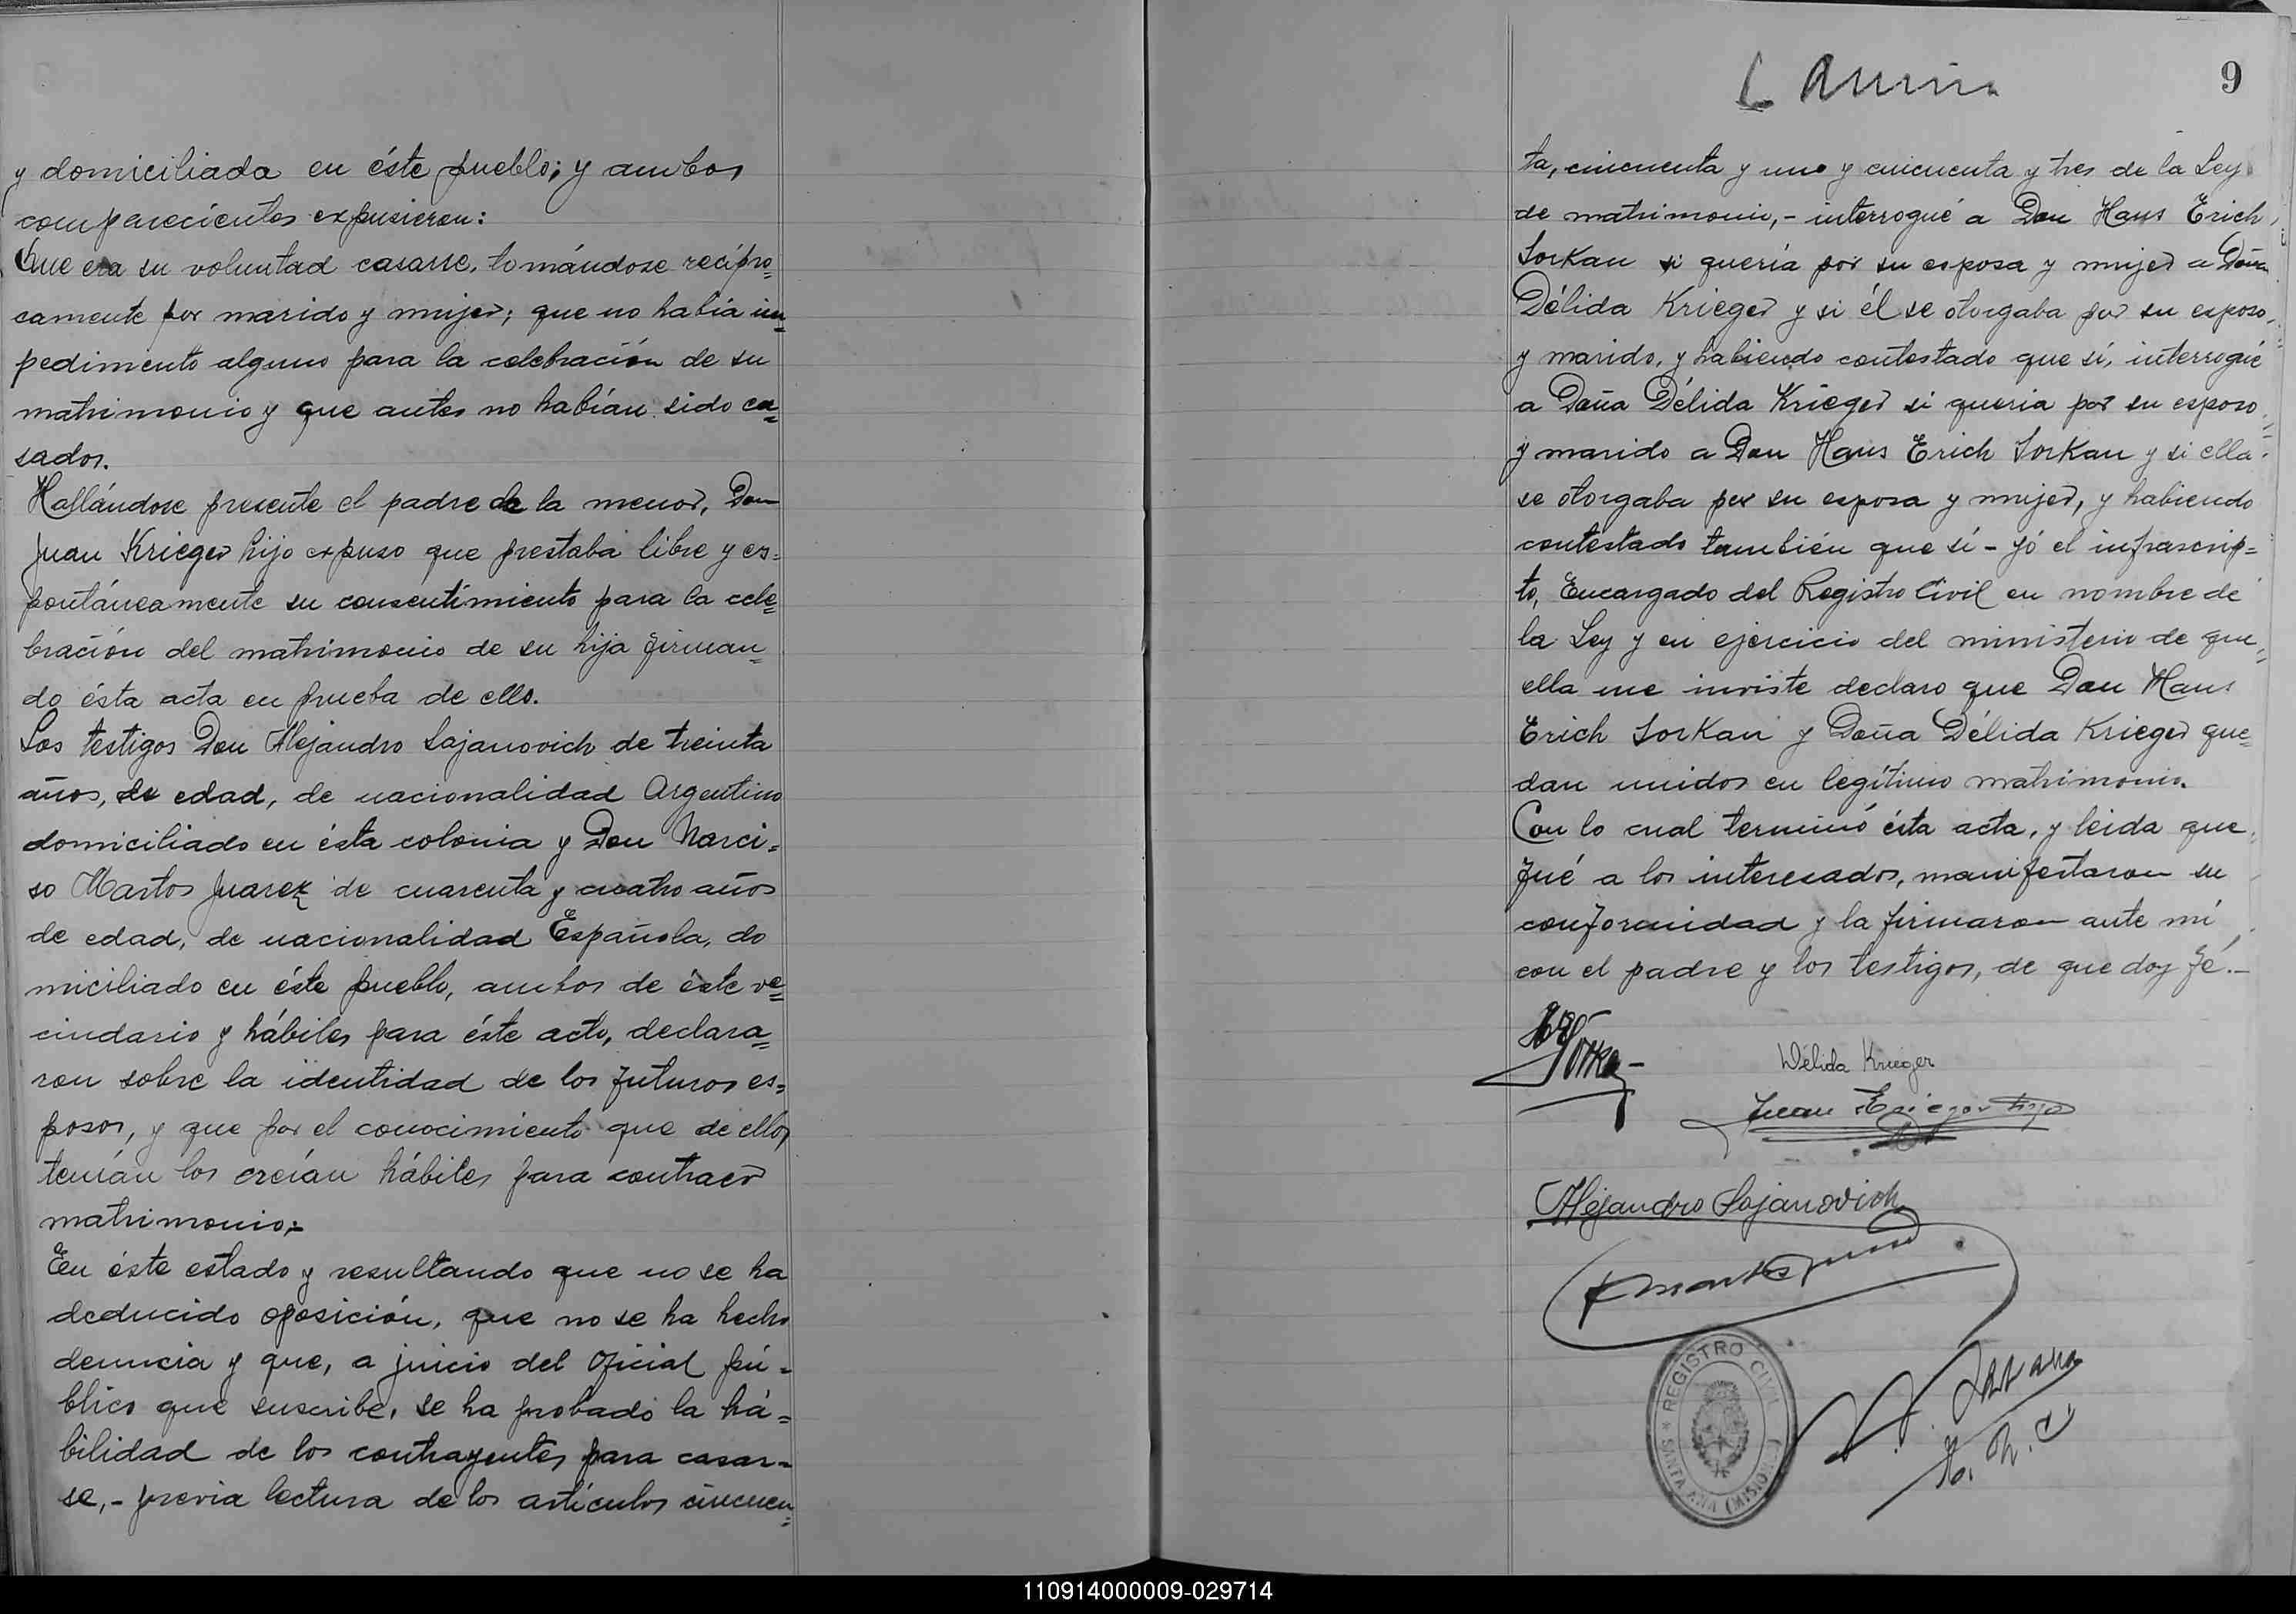 y domiciliada en éste pueblo; y ambos
comparecientes expusieron:
Que era su voluntad casarse, tomándose recípro=
camente por marido y mujer; que no había im=
pedimento alguno para la celebración de su
matrimonio y que antes no habían sido ca=
sados.
Hallándose presente el padre de la menor, Don
Juan Krieger hijo expuso que prestaba libre y es=
pontáneamente su consentimiento para la cele=
bración del matrimonio de su hija firman=
do ésta acta en prueba de ello.
Los testigos Don Alejandro Sajanovich de treinta
años, de edad, de nacionalidad Argentino
domiciliado en ésta colonia y Don Narci=
so Martos Juarez de cuarenta y cuatro años
de edad, de nacionalidad Española, do
miciliado en éste pueblo, ambos de éste ve=
cindario y hábiles para éste acto, declara=
ron sobre la identidad de los futuros es=
posos, y que por el conocimiento que de ellos
tenían los creían hábiles para contraer
matrimonio.=
En éste estado y resultando que no se ha
deducido oposición, que no se ha hecho
denuncia y que, a juicio del Oficial pú=
blico que suscribe, se ha probado la há=
bilidad de los contrayentes para casar=
se,- previa lectura de los artículos cincuen=
9
ta, cincuenta y uno y cincuenta y tres de la Ley
de matrimonio,- interrogué a Don Hans Erich
Sorkau si quería por su esposa y mujer a Doña
Délida Krieger y si él se otorgaba por su esposo
y marido, y habiendo contestado que sí, interrogué
a Doña Délida Krieger si queria por su esposo
y marido a Don Hans Erich Sorkau y si ella
se otorgaba por su esposa y mujer, y habiendo
contestado también que sí - yó el infrascrip=
to, Encargado del Registro Civil en nombre de
la Ley y en ejercicio del ministerio de que
ella me inviste declaro que Don Hans
Erich Sorkau y Doña Délida Krieger que=
dan unidos en legítimo matrimonio.
Con lo cual terminó ésta acta, y leida que
fué a los interesados, manifestaron su
conformidad y la firmaron ante mí
con el padre y los testigos, de que doy fé.-
Délida Krieger
Juan Krieger hijo
Alejandro Sajanovich
REGISTRO CIVIL
SANTA ANA (MISIONES)
110914000009-029714